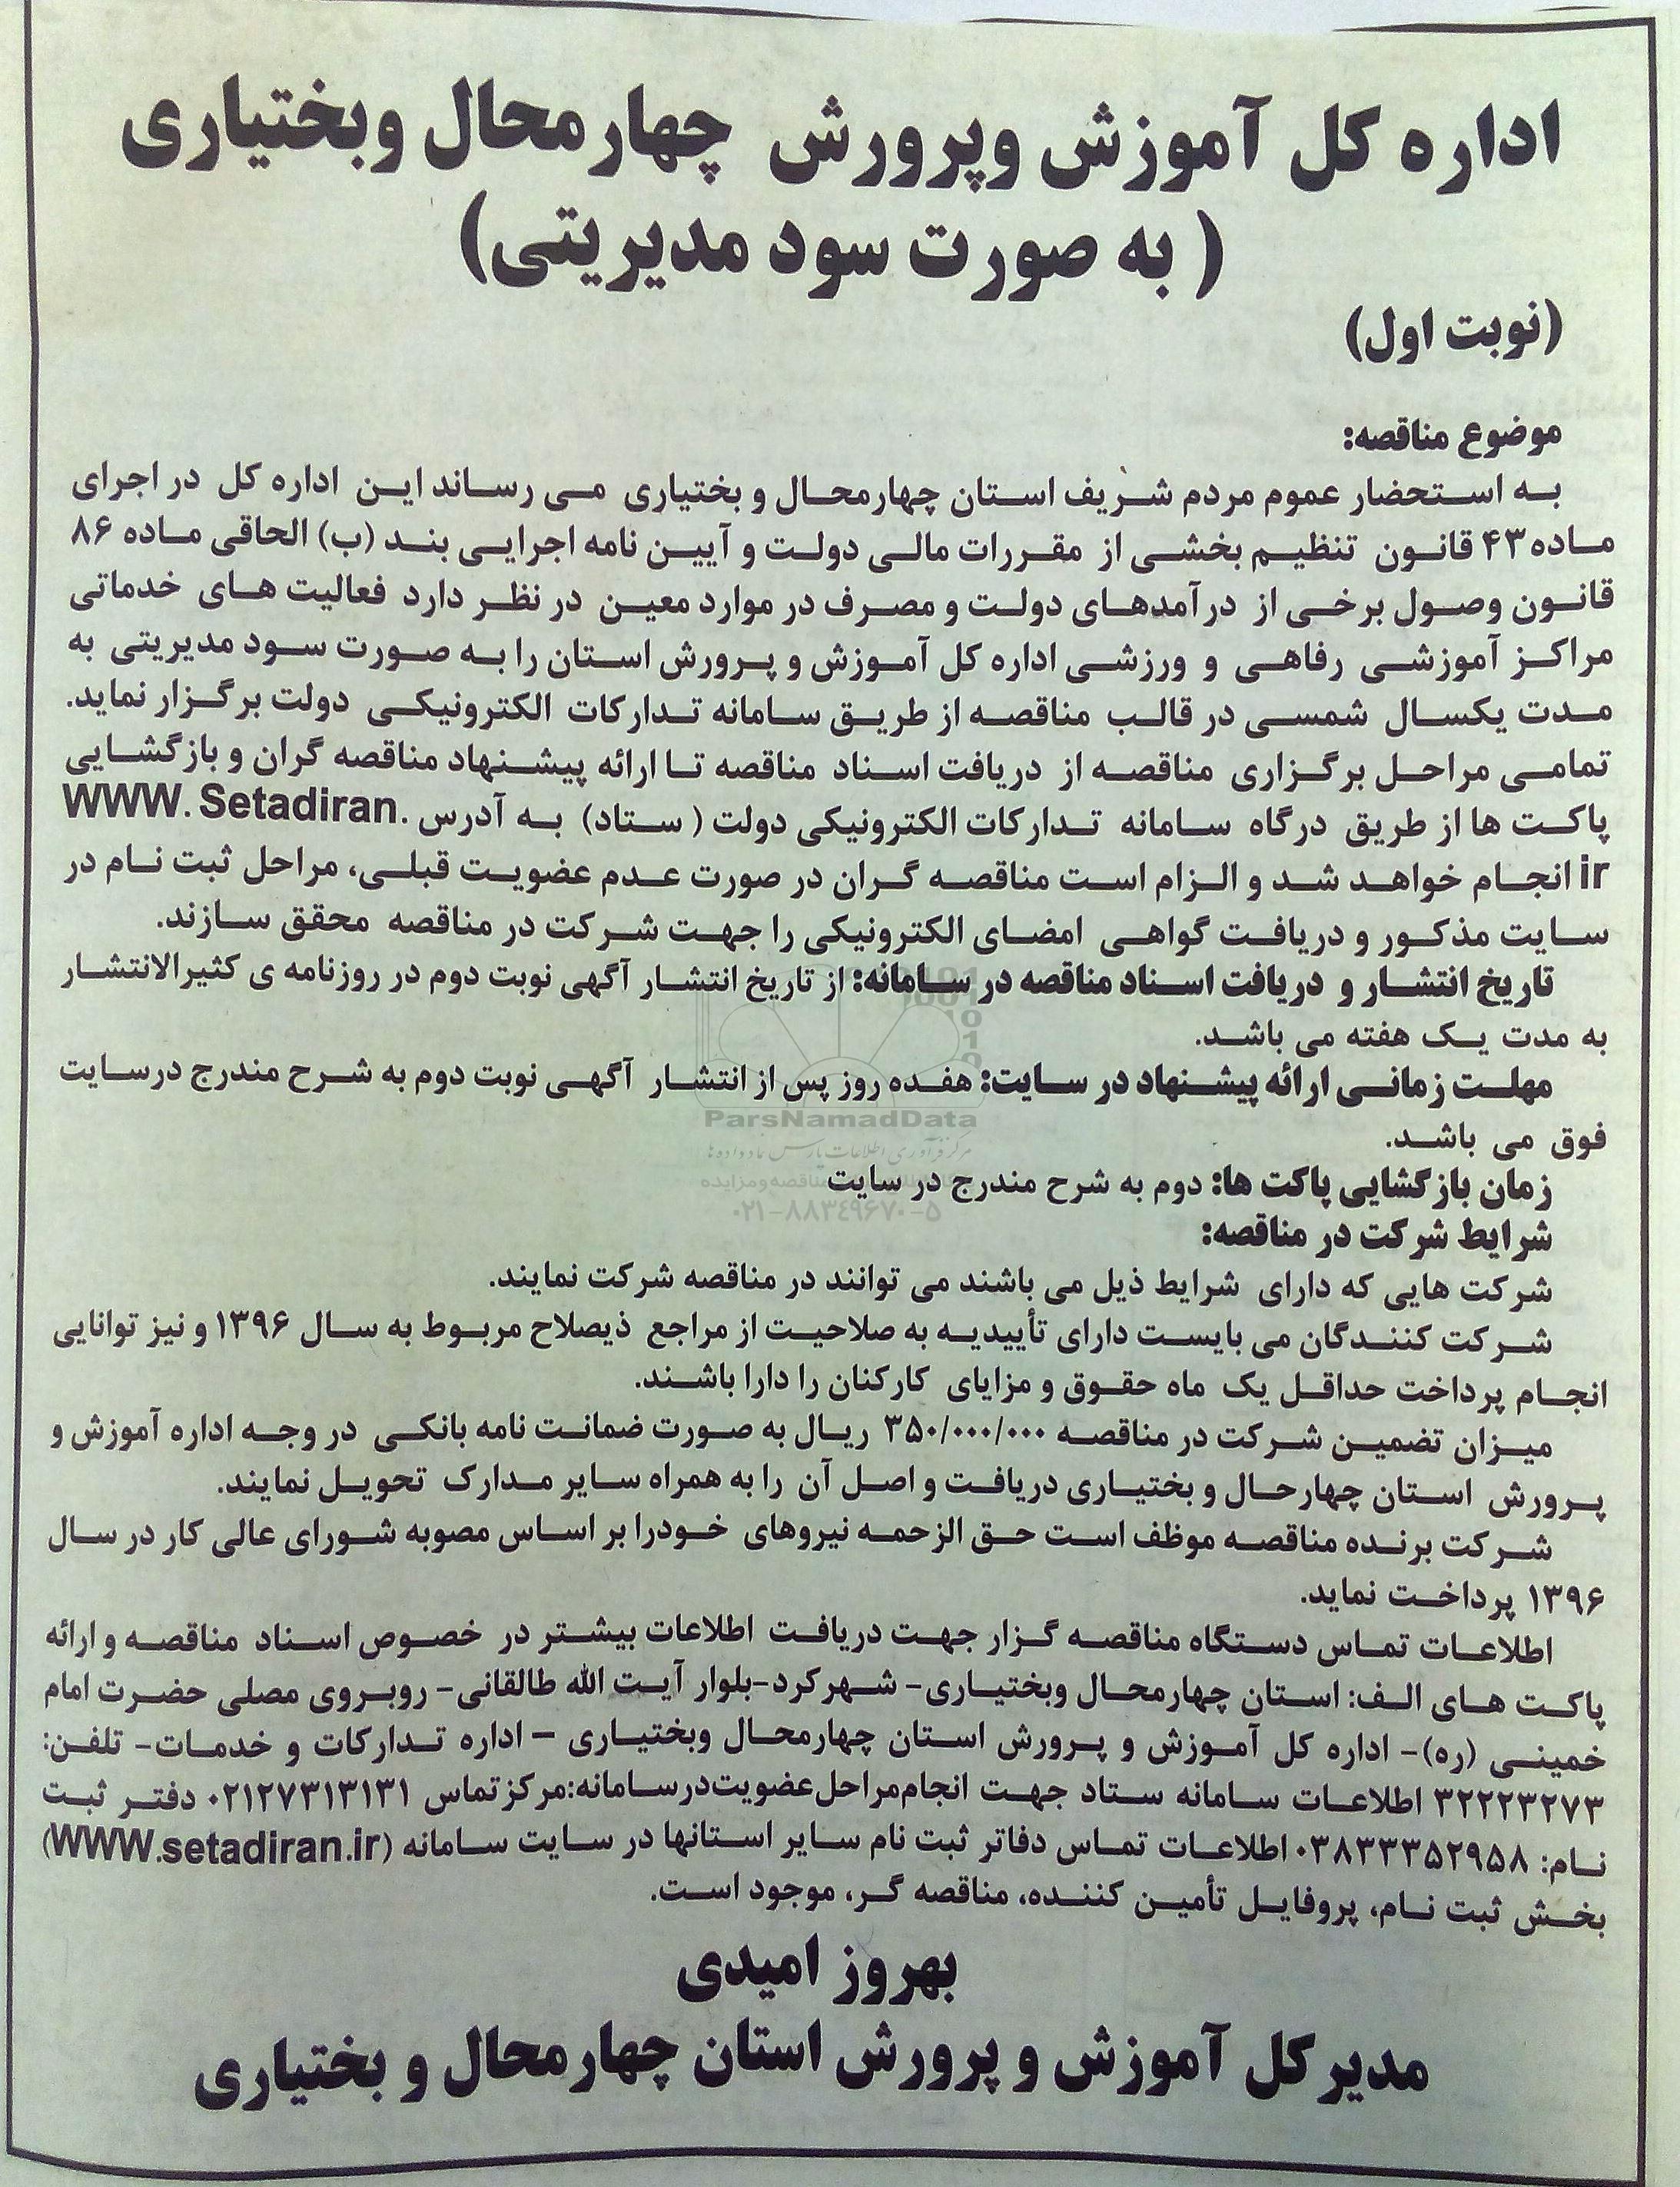 اداره کل آموزش وپرورش چهارمحال وبختیاری
( به صورت سود مدیریتی)
(نوبت اول)
موضوع مناقصه:
به استحضار عموم مردم شریف استان چهارمحال و بختیاری می رساند این اداره کل در اجرای
ماده ۴۳ قانون تنظیم بخشی از مقررات مالی دولت و آیین نامه اجرایی بند (ب) الحاقی ماده ۸۶
قانون وصول برخی از درآمدهای دولت و مصرف در موارد معین در نظر دارد فعالیت های خدماتی
مراکز آموزشی رفاهی و ورزشی اداره کل آموزش و پرورش استان را به صورت سود مدیریتی به
مدت یکسال شمسی در قالب مناقصه از طریق سامانه تدارکات الکترونیکی دولت برگزار نماید.
تمامی مراحل برگزاری مناقصه از دریافت اسناد مناقصه تا ارائه پیشنهاد مناقصه گران و بازگشایی
پاکت ها از طریق درگاه سامانه تدارکات الکترونیکی دولت ( ستاد) به آدرس WWW. Setadiran.
ir انجام خواهد شد و الزام است مناقصه گران در صورت عدم عضویت قبلی، مراحل ثبت نام در
سایت مذکور و دریافت گواهی امضای الکترونیکی را جهت شرکت در مناقصه محقق سازند.
تاریخ انتشار و دریافت اسناد مناقصه در سامانه: از تاریخ انتشار آگهی نوبت دوم در روزنامه ی کثیرالانتشار
به مدت یک هفته می باشد.
مهلت زمانی ارائه پیشنهاد در سایت: هفده روز پس از انتشار آگهی نوبت دوم به شرح مندرج درسایت
ParsNamadData
فوق می باشد.
مرکز فرآوری اطلاعات پارس نماد داده ها
زمان بازگشایی پاکت ها: دوم به شرح مندرج در سایت
مناقصه و مزایده
۰۲۱-۸۸۳۴۹۶۷۰-۵
شرایط شرکت در مناقصه:
شرکت هایی که دارای شرایط ذیل می باشند می توانند در مناقصه شرکت نمایند.
شرکت کنندگان می بایست دارای تأییدیه به صلاحیت از مراجع ذیصلاح مربوط به سال ۱۳۹۶ و نیز توانایی
انجام پرداخت حداقل یک ماه حقوق و مزایای کارکنان را دارا باشند.
میزان تضمین شرکت در مناقصه ۳۵۰/۰۰۰/۰۰۰ ریال به صورت ضمانت نامه بانکی در وجه اداره آموزش و
پرورش استان چهارحال و بختیاری دریافت و اصل آن را به همراه سایر مدارک تحویل نمایند.
شرکت برنده مناقصه موظف است حق الزحمه نیروهای خودرا بر اساس مصوبه شورای عالی کار در سال
۱۳۹۶ پرداخت نماید.
اطلاعات تماس دستگاه مناقصه گزار جهت دریافت اطلاعات بیشتر در خصوص اسناد مناقصه و ارائه
پاکت های الف: استان چهارمحال وبختیاری- شهرکرد-بلوار آیت الله طالقانی- روبروی مصلی حضرت امام
خمینی (ره)- اداره کل آموزش و پرورش استان چهارمحال وبختیاری – اداره تدارکات و خدمات- تلفن:
۳۲۲۲۳۲۷۳ اطلاعات سامانه ستاد جهت انجام‌مراحل‌عضویت‌درسامانه:مرکزتماس ۰۲۱۲۷۳۱۳۱۳۱ دفتر ثبت
نام: ۰۳۸۳۳۳۵۲۹۵۸ اطلاعات تماس دفاتر ثبت نام سایر استانها در سایت سامانه (WWW.setadiran.ir)
بخش ثبت نام، پروفایل تأمین کننده، مناقصه گر، موجود است.
بهروز امیدی
مدیرکل آموزش و پرورش استان چهارمحال و بختیاری